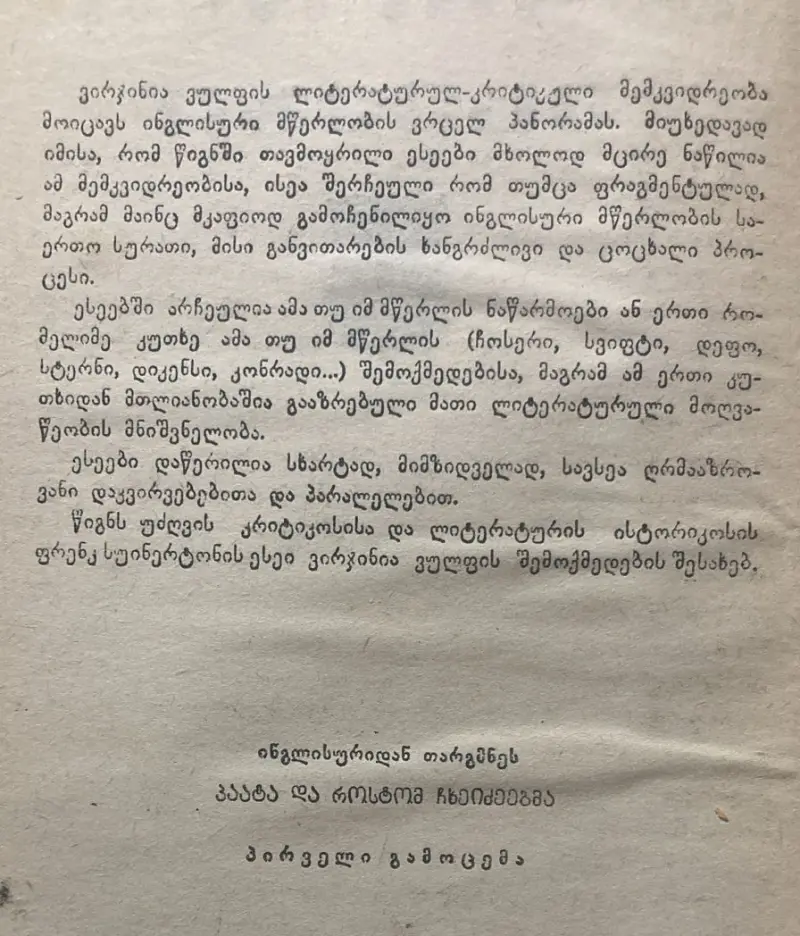 ვირჯინია ვულფის ლიტერატურულ-კრიტიკული მემკვიდრეობა
მოიცავს ინგლისური მწერლობის ვრცელ პანორამას. მიუხედავად
იმისა, რომ წიგნში თავმოყრილი ესეები მხოლოდ მცირე ნაწილია
ამ მემკვიდრეობისა, ისეა შერჩეული რომ თუმცა ფრაგმენტულად,
მაგრამ მაინც მკაფიოდ გამოჩენილიყო ინგლისური მწერლობის სა-
ერთო სურათი, მისი განვითარების ხანგრძლივი და ცოცხალი პრო-
ცესი.
ესეებში არჩეულია ამა თუ იმ მწერლის ნაწარმოები ან ერთი რო-
მელიმე კუთხე ამა თუ იმ მწერლის (ჩოსერი, სვიფტი, დეფო,
სტერნი, დიკენსი, კონრადი...) შემოქმედებისა, მაგრამ ამ ერთი კუ-
თხიდან მთლიანობაშია გააზრებული მათი ლიტერატურული მოღვა-
წეობის მნიშვნელობა.
ესეები დაწერილია სხარტად, მიმზიდველად, სავსეა ღრმააზრო-
ვანი დაკვირვებებითა და პარალელებით.
წიგნს უძღვის კრიტიკოსისა და ლიტერატურის ისტორიკოსის
ფრენკ სუინერტონის ესეი ვირჯინია ვულფის შემოქმედების შესახებ.
ინგლისურიდან თარგმნეს
პაატა და როსტომ ჩხეიძეებმა
პირველი გამოცემა